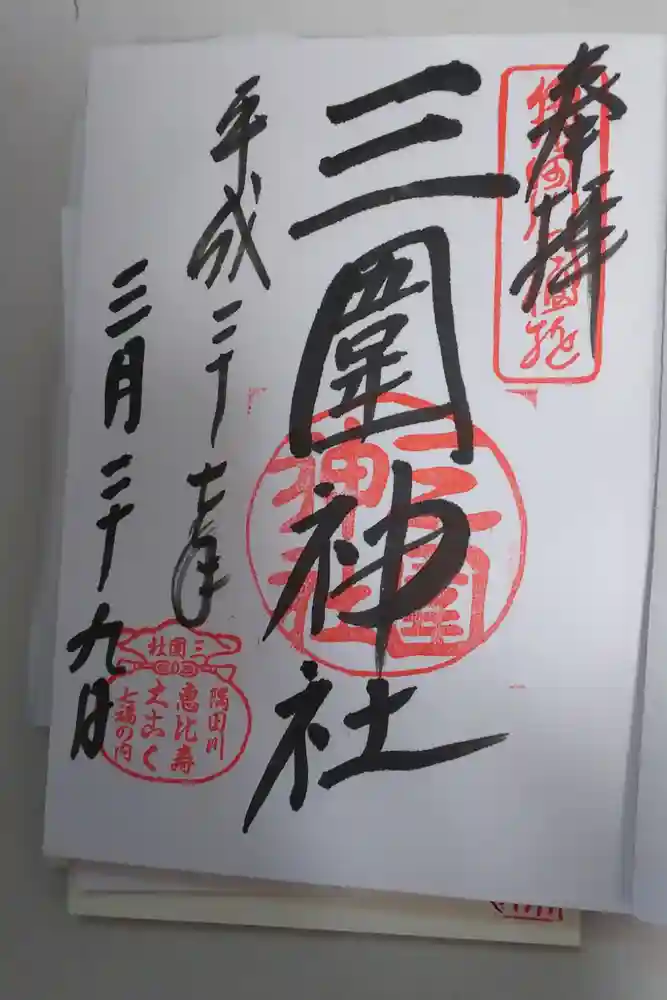 奉拝
三圍神社
三圍
神社
平成二十七年
三月二十九日
三囲社
隅田川
恵比寿
大こく
七福の内